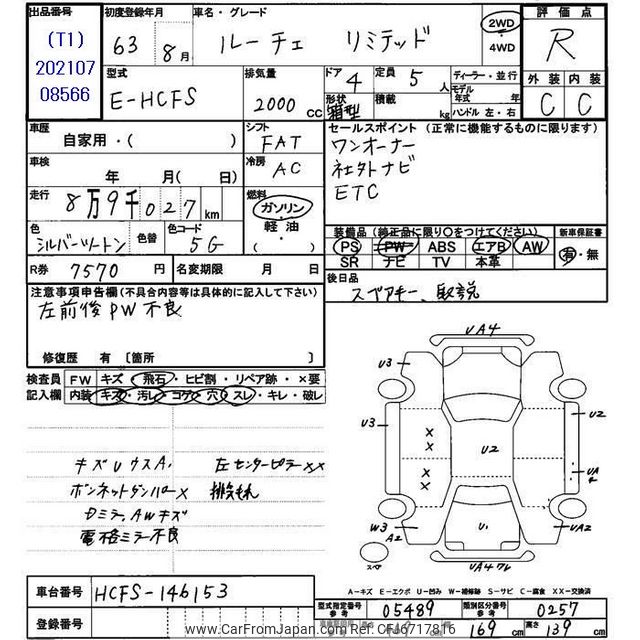 出品番号 初度登録年月 車名・グレード 評価点
(T1) 63 8月 ルーチェ リミテッド 2WD 4WD R
202107
08566
型式 排気量 ドア 4 定員 5人 ディーラー・並行 外装 内装
E-HCFS 2000 CC 形状 箱型 積載 kg モデル年式 年 ハンドル 左・右 C C
車歴 自家用・( ) シフト FAT セールスポイント(正常に機能するものに限ります)
車検 年 月(日) 冷房 AC ワンオーナー
社外ナビ
走行 8万9千027km 燃料 ガソリン・軽油・( ) ETC
色 シルバーツートン 色替 色コード 5G 装備品(純正品に限り○をつけてください) 新車保証書
PS PW ABS エアB AW 有・無
SR ナビ TV 本革
R券 7570円 名変期限 月 日 後日品
スペアキー、取説
注意事項申告欄(不具合内容等は具体的に記入して下さい)
左前後PW不良
修復歴 有〔箇所 〕
検査員 FW キズ・飛石・ヒビ割・リペア跡・×要
記入欄 内装 キズ・汚レ・コゲ・穴・スレ・キレ・破レ
キズUウスA. 左センターピラーXX
ボンネットダンパーX
ドミラ、AWキズ
電格ミラー不良
UA4
U3 U3 U2 U2 UA4
XX
XX
W3 A2 U1 UA2
スペア
A-キズ E-エクボ U-凹み W-補修跡 S-サビ C-腐食 XX-交換済
車台番号 HCFS-146153
型式指定番号 参考 05489 類別区分番号 参考 0257
登録番号 169cm 高さ 139cm
www.CarFromJapan.com Ref: CF67117816